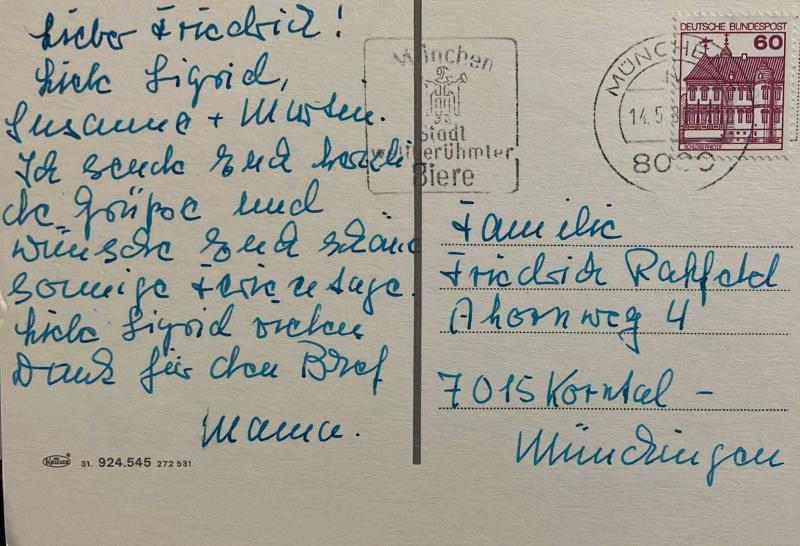 Lieber Friedrich!
Liebe Sigrid,
Susanne + Morten.
Ich sende Euch herzli
che Grüße und
wünsche Euch schöne
sonnige Ferientage.
Liebe Sigrid vielen
Dank für den Brief
Mama.
31. 924.545 272 531
München
Stadt
weltberühmter
Biere
MÜNCHE
14.5.8
8000
DEUTSCHE BUNDESPOST
60
Familie
Friedrich
Ahornweg 4
7015 Korntal -
Münchingen